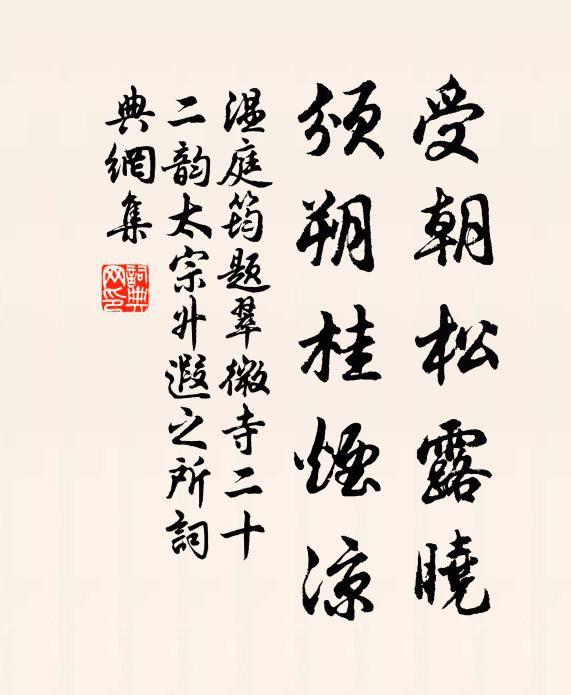 受朝松露曉
頒朔桂煙涼
溫庭筠題翠微寺二十
二韵太宗升遐之所詞
典網集
詞典网印